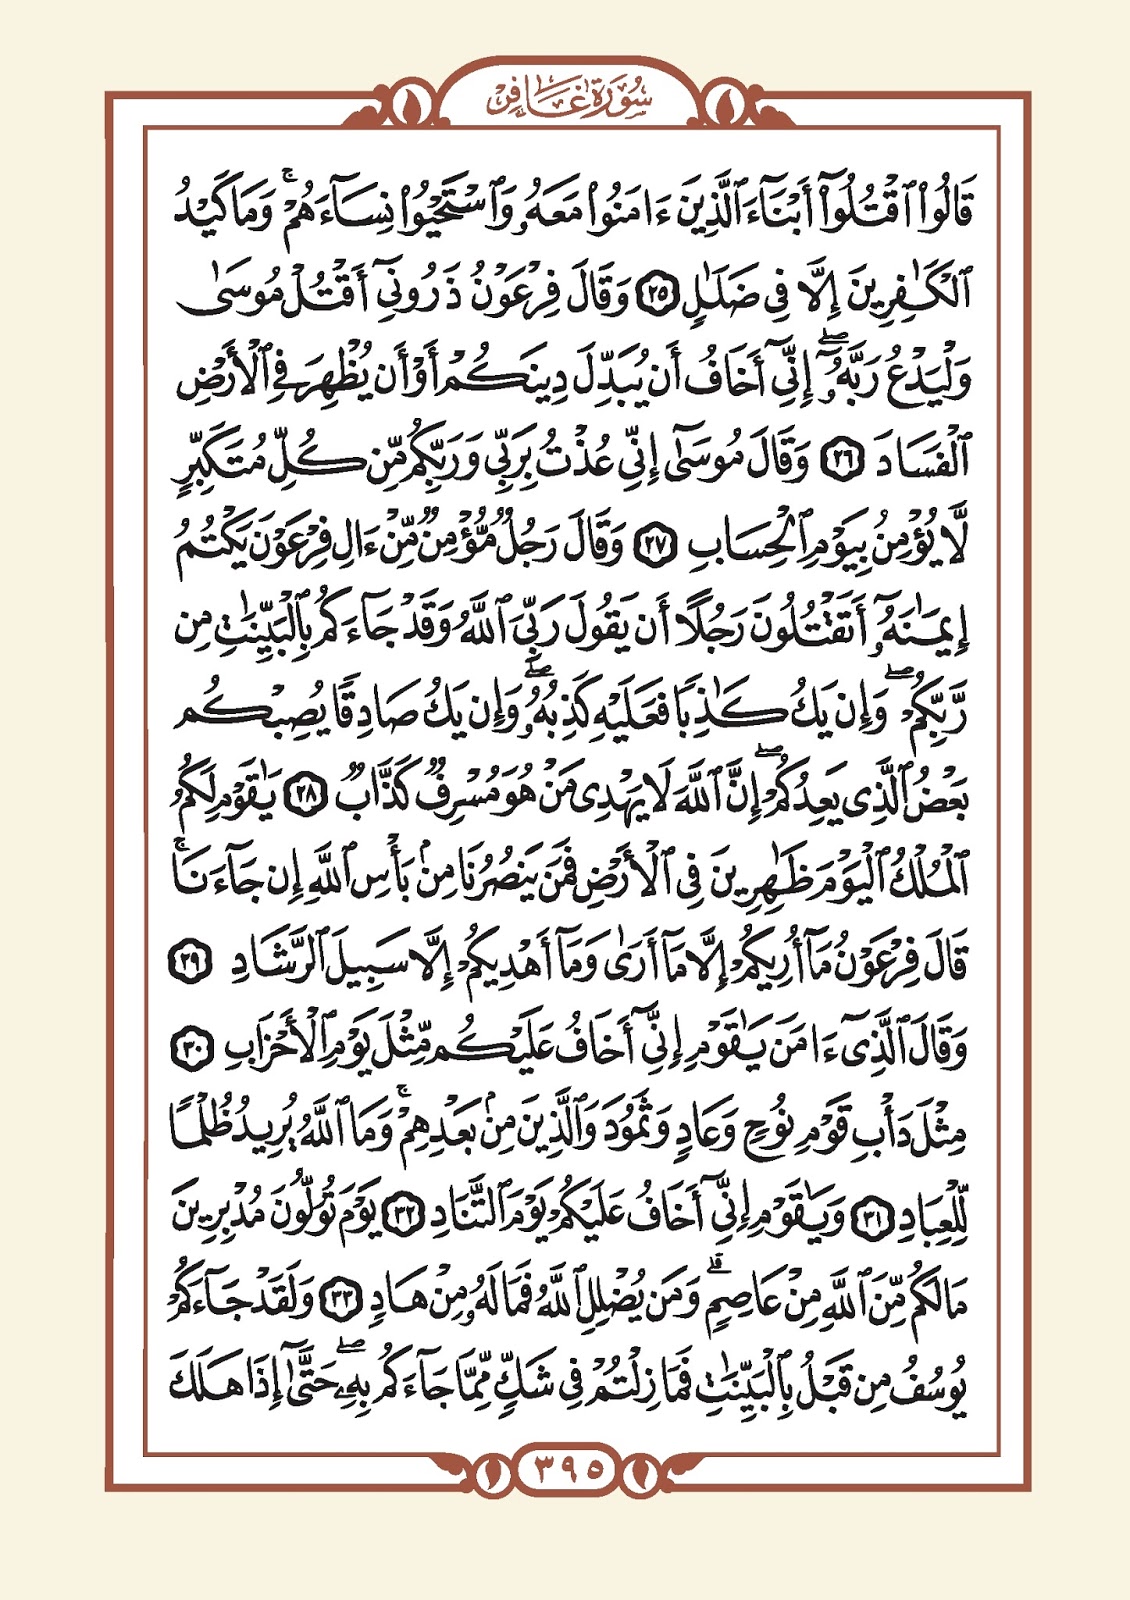 سُورَةُ غَافِرٍ
قَالُوا۟ ٱقْتُلُوٓا۟ أَبْنَآءَ ٱلَّذِينَ ءَامَنُوا۟ مَعَهُۥ وَٱسْتَحْيُوا۟ نِسَآءَهُمْ ۚ وَمَا كَيْدُ
ٱلْكَـٰفِرِينَ إِلَّا فِى ضَلَـٰلٍ ٢٥ وَقَالَ فِرْعَوْنُ ذَرُونِىٓ أَقْتُلْ مُوسَىٰ
وَلْيَدْعُ رَبَّهُۥٓ ۖ إِنِّىٓ أَخَافُ أَن يُبَدِّلَ دِينَكُمْ أَوْ أَن يُظْهِرَ فِى ٱلْأَرْضِ
ٱلْفَسَادَ ٢٦ وَقَالَ مُوسَىٰٓ إِنِّى عُذْتُ بِرَبِّى وَرَبِّكُم مِّن كُلِّ مُتَكَبِّرٍ
لَّا يُؤْمِنُ بِيَوْمِ ٱلْحِسَابِ ٢٧ وَقَالَ رَجُلٌ مُّؤْمِنٌ مِّنْ ءَالِ فِرْعَوْنَ يَكْتُمُ
إِيمَـٰنَهُۥٓ أَتَقْتُلُونَ رَجُلًا أَن يَقُولَ رَبِّىَ ٱللَّهُ وَقَدْ جَآءَكُم بِٱلْبَيِّنَـٰتِ مِن
رَّبِّكُمْ ۖ وَإِن يَكُ كَـٰذِبًا فَعَلَيْهِ كَذِبُهُۥ ۖ وَإِن يَكُ صَادِقًا يُصِبْكُم
بَعْضُ ٱلَّذِى يَعِدُكُمْ ۖ إِنَّ ٱللَّهَ لَا يَهْدِى مَنْ هُوَ مُسْرِفٌ كَذَّابٌ ٢٨ يَـٰقَوْمِ لَكُمُ
ٱلْمُلْكُ ٱلْيَوْمَ ظَـٰهِرِينَ فِى ٱلْأَرْضِ فَمَن يَنصُرُنَا مِنۢ بَأْسِ ٱللَّهِ إِن جَآءَنَا ۚ
قَالَ فِرْعَوْنُ مَآ أُرِيكُمْ إِلَّا مَآ أَرَىٰ وَمَآ أَهْدِيكُمْ إِلَّا سَبِيلَ ٱلرَّشَادِ ٢٩
وَقَالَ ٱلَّذِىٓ ءَامَنَ يَـٰقَوْمِ إِنِّىٓ أَخَافُ عَلَيْكُم مِّثْلَ يَوْمِ ٱلْأَحْزَابِ ٣٠
مِثْلَ دَأْبِ قَوْمِ نُوحٍ وَعَادٍ وَثَمُودَ وَٱلَّذِينَ مِنۢ بَعْدِهِمْ ۚ وَمَا ٱللَّهُ يُرِيدُ ظُلْمًا
لِّلْعِبَادِ ٣١ وَيَـٰقَوْمِ إِنِّىٓ أَخَافُ عَلَيْكُمْ يَوْمَ ٱلتَّنَادِ ٣٢ يَوْمَ تُوَلُّونَ مُدْبِرِينَ
مَا لَكُم مِّنَ ٱللَّهِ مِنْ عَاصِمٍ ۗ وَمَن يُضْلِلِ ٱللَّهُ فَمَا لَهُۥ مِنْ هَادٍ ٣٣ وَلَقَدْ جَآءَكُمْ
يُوسُفُ مِن قَبْلُ بِٱلْبَيِّنَـٰتِ فَمَا زِلْتُمْ فِى شَكٍّ مِّمَّا جَآءَكُم بِهِۦ ۖ حَتَّىٰٓ إِذَا هَلَكَ
٣٩٥